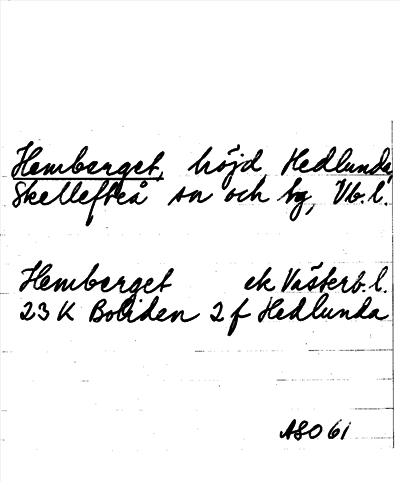 Hemberget, höjd, Hedlunda,
Skellefteå sn och hg, Vb.l.
Hemberget ek Västerb.l.
23 K Boliden 2f Hedlunda
ASO 61